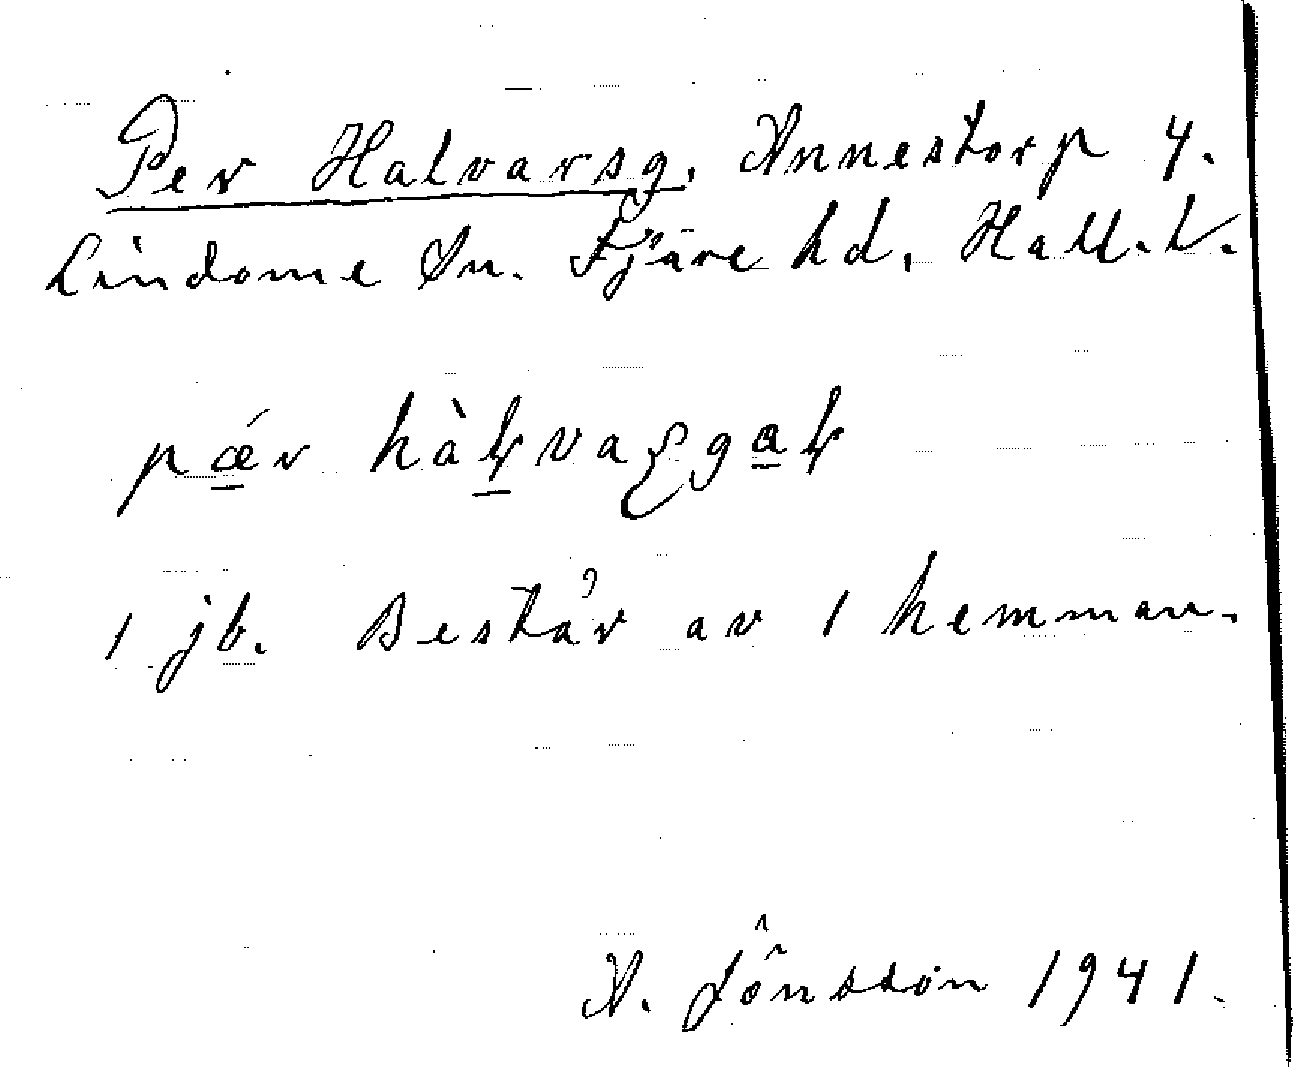 Per Halvarsg. Annestorp 4.
Lindome Sn. Fjäre hd, Hall. L.
pǽr hàɫvaʂgaɫ
1 jb. Består av 1 hemman.
A. Jönsson 1941.